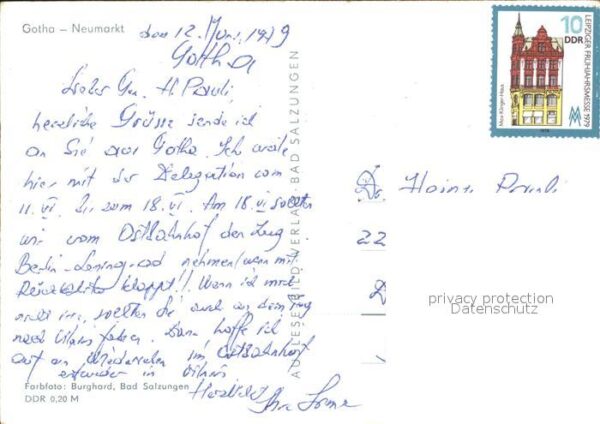 Gotha – Neumarkt
den 12. Juni 1979
Gotha
Lieber Gen. H. Pauli,
herzliche Grüsse sende ich
an Sie aus Gotha. Ich weile
hier mit der Delegation vom
11. VI. bis zum 18. VI. Am 18. VI sollten
wir vom Ostbahnhof den Zug
Berlin-Leningrad nehmen (wenn mit
klappt!). Wenn ich mich
nicht irre, sollten Sie auch an dem Tag
nach Vilnius fahren. Dann hoffe ich
auf ein Wiedersehen im Ostbahnhof
entweder in Vilnius
Herzlichst
Ihre
Farbfoto: Burghard, Bad Salzungen
DDR 0,20 M
AUSLESE-BILD-VERLAG BAD SALZUNGEN
10
DDR
LEIPZIGER FRÜHJAHRSMESSE 1979
Max-Klinger-Haus
MM
Dr. Heinz Pauli
22
D
privacy protection
Datenschutz